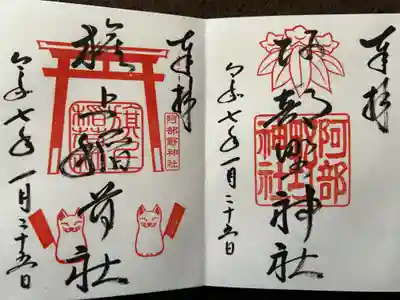 奉拝
阿部野神社
阿部野神社
令和七年一月二十五日
奉拝
阿部野神社
旗上稲荷社
令和七年一月二十五日